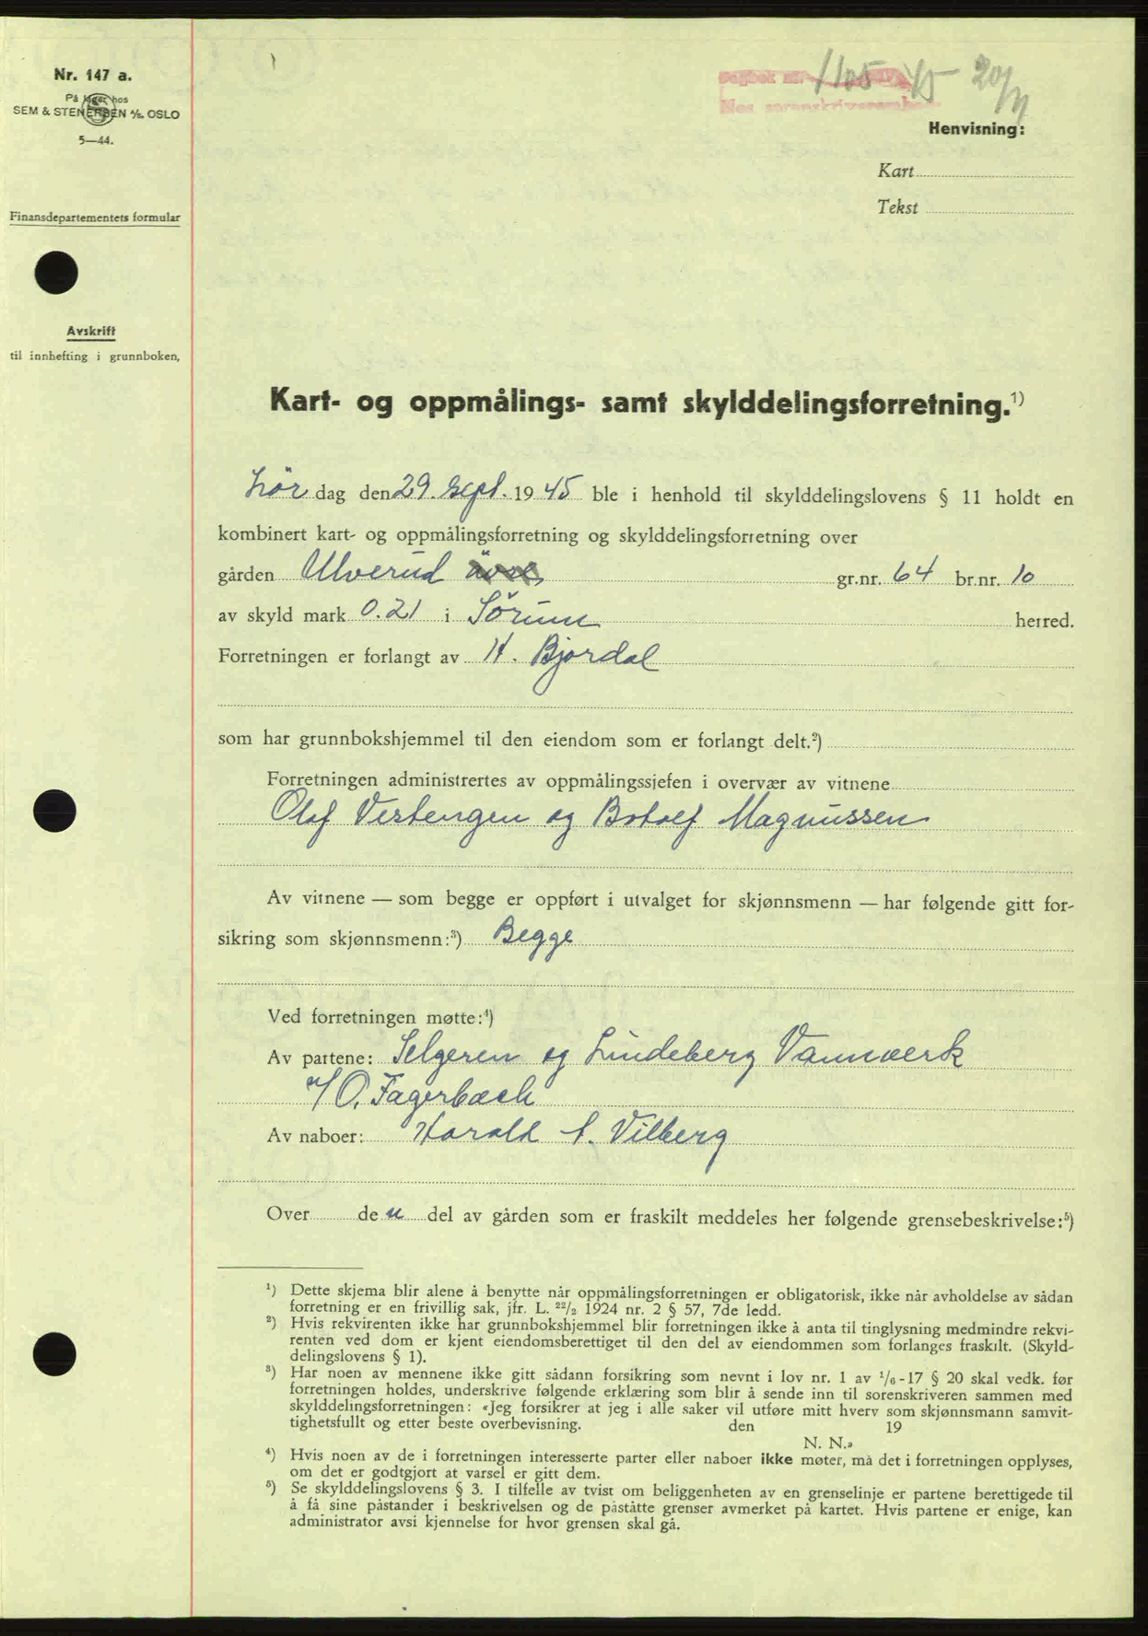 Nr. 147 a.
På lager hos
SEM & STENERSEN A/S. OSLO
5—44.
Finansdepartementets formular
Avskrift
til innhefting i grunnboken.
Dagbok nr. 1105 45 20/11
Nes sorenskriverembede
Henvisning:
Kart
Tekst
Kart- og oppmålings- samt skylddelingsforretning.¹)
Lör dag den 29. sept. 19 45 ble i henhold til skylddelingslovens § 11 holdt en
kombinert kart- og oppmålingsforretning og skylddelingsforretning over
gården Ulverud gr.nr. 64 br.nr. 10
av skyld mark 0.21 i Sörum herred.
Forretningen er forlangt av H. Bjordal
som har grunnbokshjemmel til den eiendom som er forlangt delt.²)
Forretningen administrertes av oppmålingssjefen i overvær av vitnene
Olaf Vestengen og Botolf Magnussen
Av vitnene — som begge er oppført i utvalget for skjønnsmenn — har følgende gitt for-
sikring som skjønnsmenn:³) Begge
Ved forretningen møtte:⁴)
Av partene: Selgeren og Lindeberg Vannverk
v/ O. Fagerbach
Av naboer: Harald A. Vilberg
Over den del av gården som er fraskilt meddeles her følgende grensebeskrivelse:⁵)
¹) Dette skjema blir alene å benytte når oppmålingsforretningen er obligatorisk, ikke når avholdelse av sådan
forretning er en frivillig sak, jfr. L. ²²/₂ 1924 nr. 2 § 57, 7de ledd.
²) Hvis rekvirenten ikke har grunnbokshjemmel blir forretningen ikke å anta til tinglysning medmindre rekvi-
renten ved dom er kjent eiendomsberettiget til den del av eiendommen som forlanges fraskilt. (Skyld-
delingslovens § 1).
³) Har noen av mennene ikke gitt sådann forsikring som nevnt i lov nr. 1 av ¹/₆-17 § 20 skal vedk. før
forretningen holdes, underskrive følgende erklæring som blir å sende inn til sorenskriveren sammen med
skylddelingsforretningen: «Jeg forsikrer at jeg i alle saker vil utføre mitt hverv som skjønnsmann samvit-
tighetsfullt og etter beste overbevisning. den 19
N. N.»
⁴) Hvis noen av de i forretningen interesserte parter eller naboer ikke møter, må det i forretningen opplyses,
om det er godtgjort at varsel er gitt dem.
⁵) Se skylddelingslovens § 3. I tilfelle av tvist om beliggenheten av en grenselinje er partene berettigede til
å få sine påstander i beskrivelsen og de påståtte grenser avmerket på kartet. Hvis partene er enige, kan
administrator avsi kjennelse for hvor grensen skal gå.